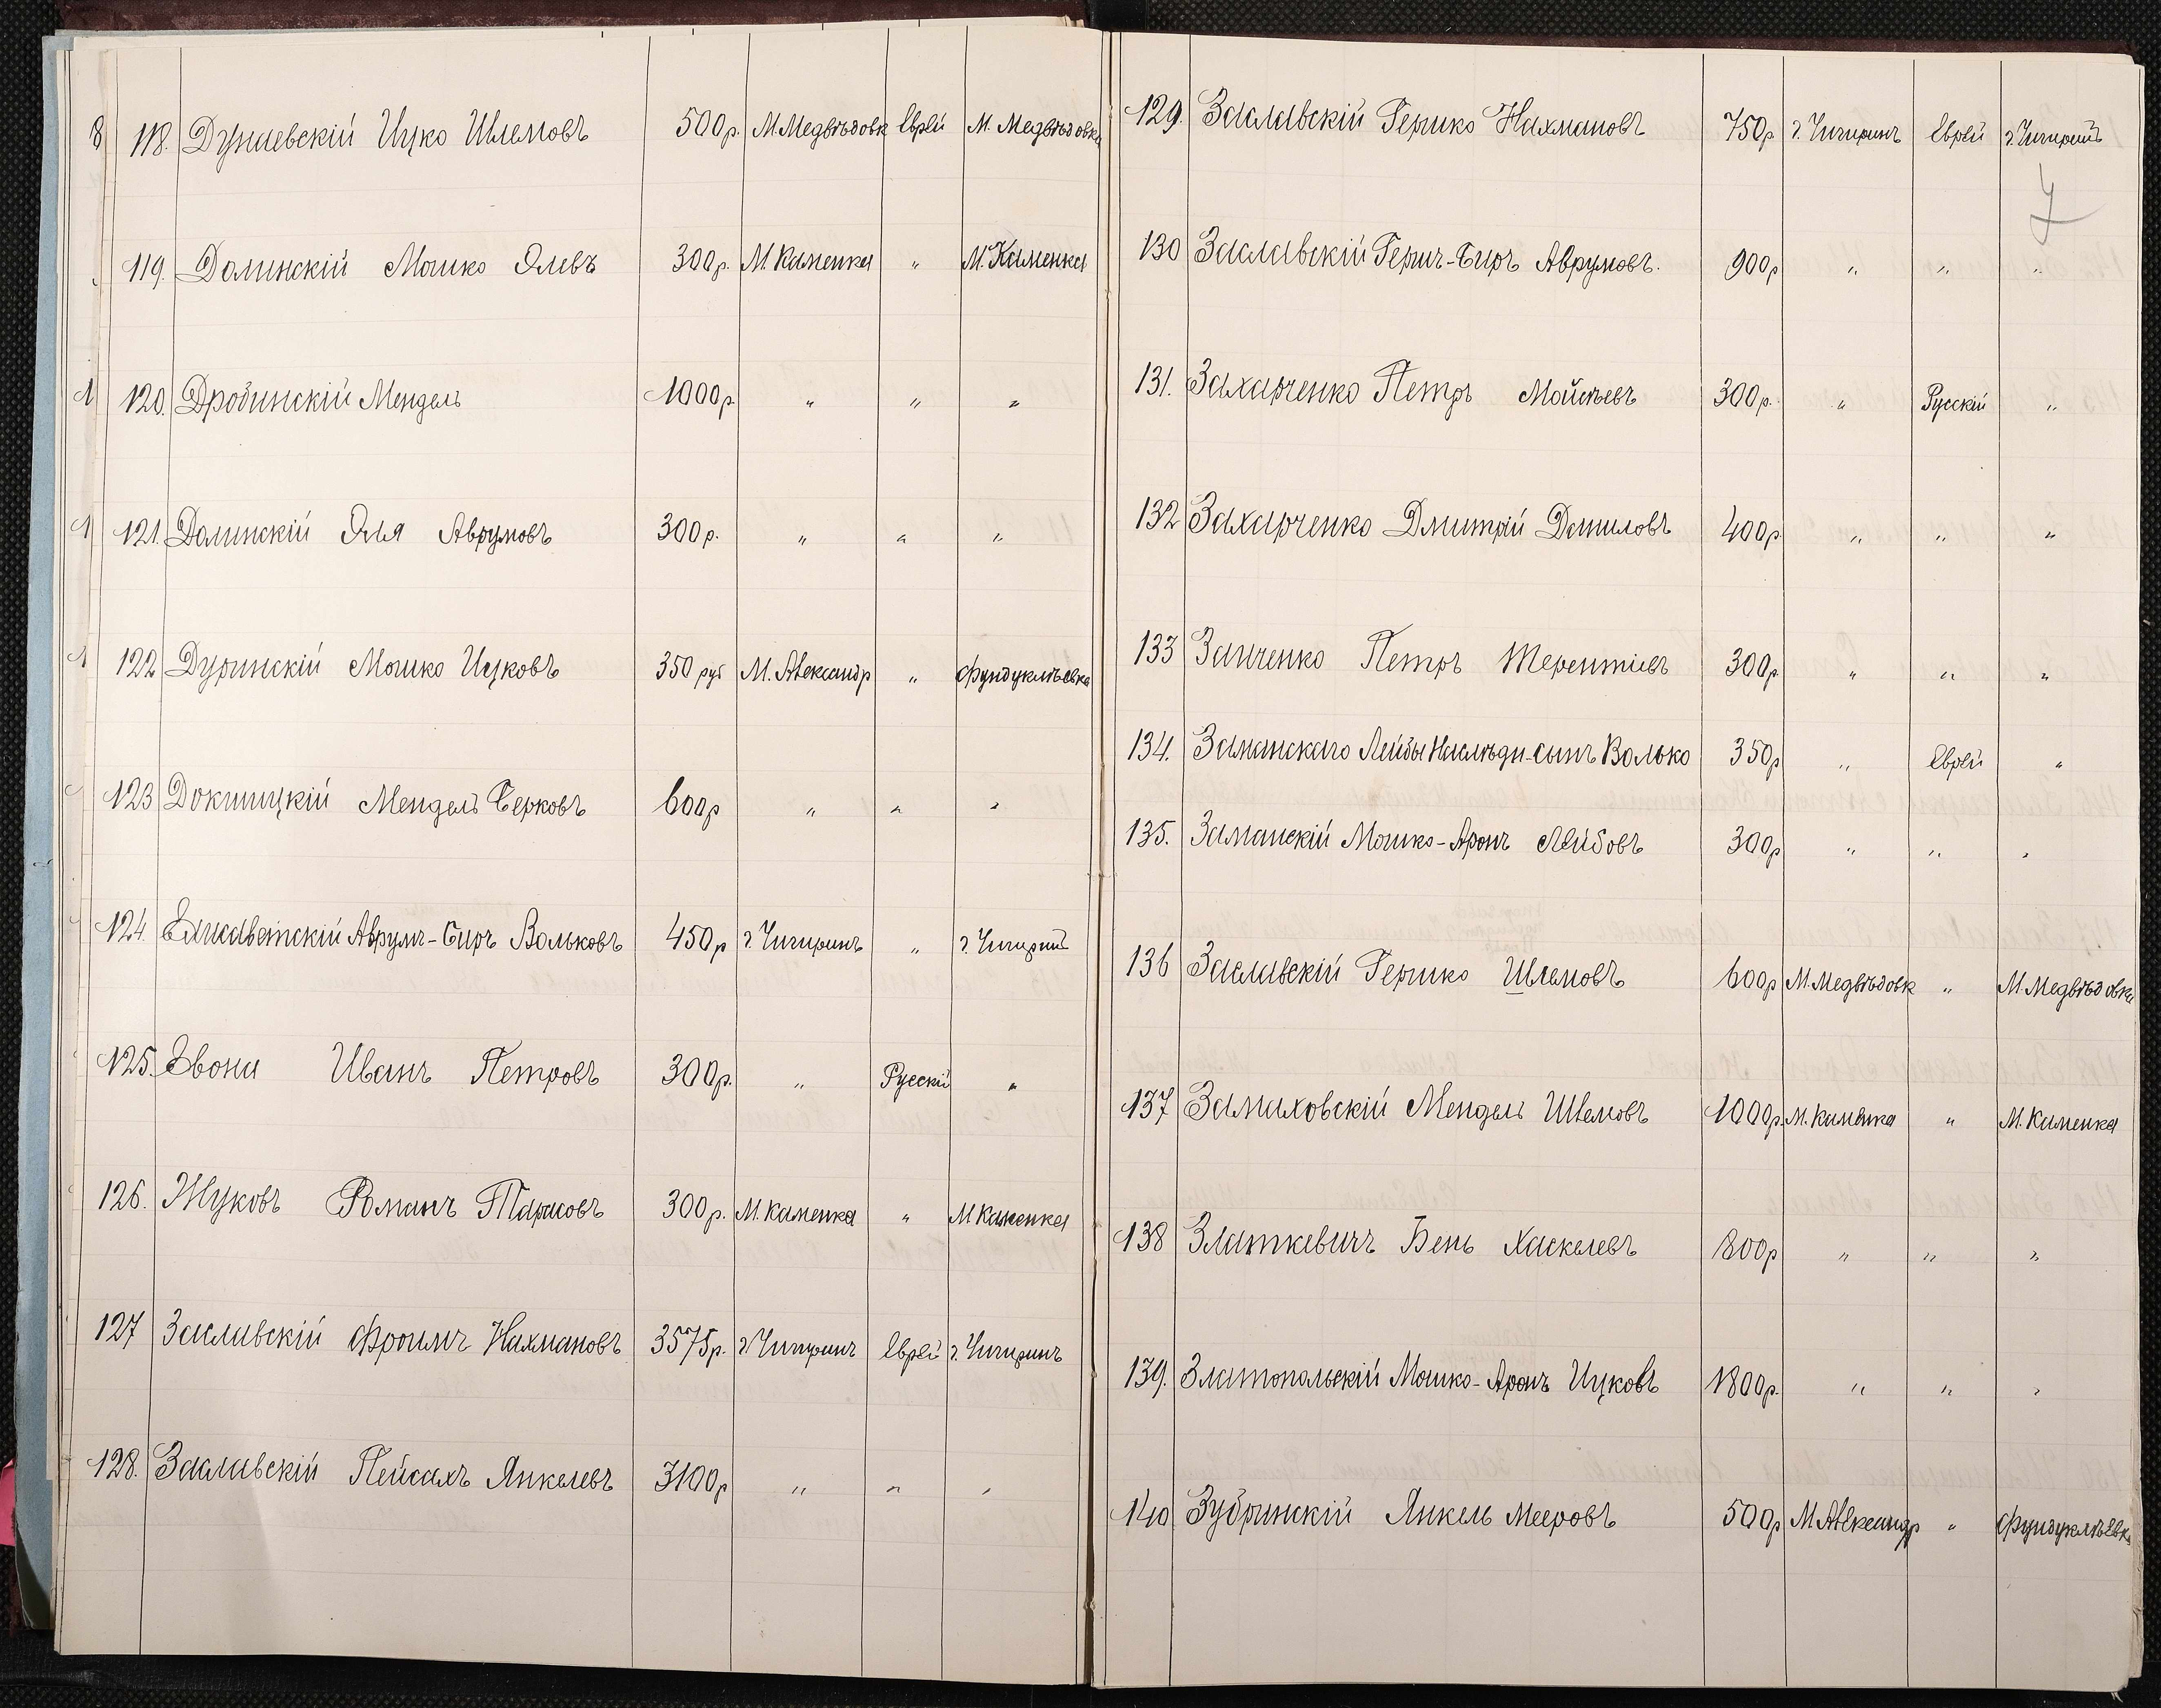 118. Дунаевскій Ицко Шлемовъ 500р. М.Медвѣдовк Еврей М. Медвѣдовка
119. Долинскій Мошко Элевъ 300р. М. Каменка " М. Каменка
120. Дробинскій Мендель 1000р. " " "
121. Долинскій Эля Аврумовъ 300р. " " "
122 Дуринскій Мошко Ицковъ 350 руб М. Александр " Фундуклѣевка
123 Докшицкій Мендель Берковъ 600р " " "
124. Елисаветскій Аврумъ-Беръ Вольковъ 450р г. Чигиринъ " г. Чигирин
125. Звона Иванъ Петровъ 300р. " Русскій "
126. Жуковъ Романъ Тарасовъ 300р. М. Каменка " М Каменка
127 Заславскій Фроимъ Нахмановъ 3575р. г. Чигиринъ Еврей г. Чигиринъ
128. Заславскій Пейсахъ Янкелевъ 3100р " " "
129. Заславскій Гершко Нахмановъ 750р г. Чигиринъ Еврей г. Чигиринъ
7
130 Заславскій Гершъ-Беръ Аврумовъ. 900р " " "
131. Захарченко Петръ Мойсѣевъ 300р. " Русскій "
132 Захарченко Дмитрій Даниловъ 400р " " "
133 Заиченко Петръ Терентіевъ 300р. " " "
134. Заманскаго Лейбы Наслѣдн-сынъ Волько 350р " Еврей "
135. Заманскій Мошко-Аронъ Лейбовъ 300р " " "
136 Заславскій Гершко Шлемовъ 600р М.Медвѣдовк " М.Медвѣдовка
137 Замиховскій Мендель Шлемовъ 1000р. М. Каменка " М. Каменка
138 Златкевичъ Бень Хаскелевъ 800р " " "
139. Златопольскій Мошко-Аронъ Ицковъ 1800р. " " "
140 Зубринскій Янкель Мееровъ 500р М Александр " Фундуклѣевк